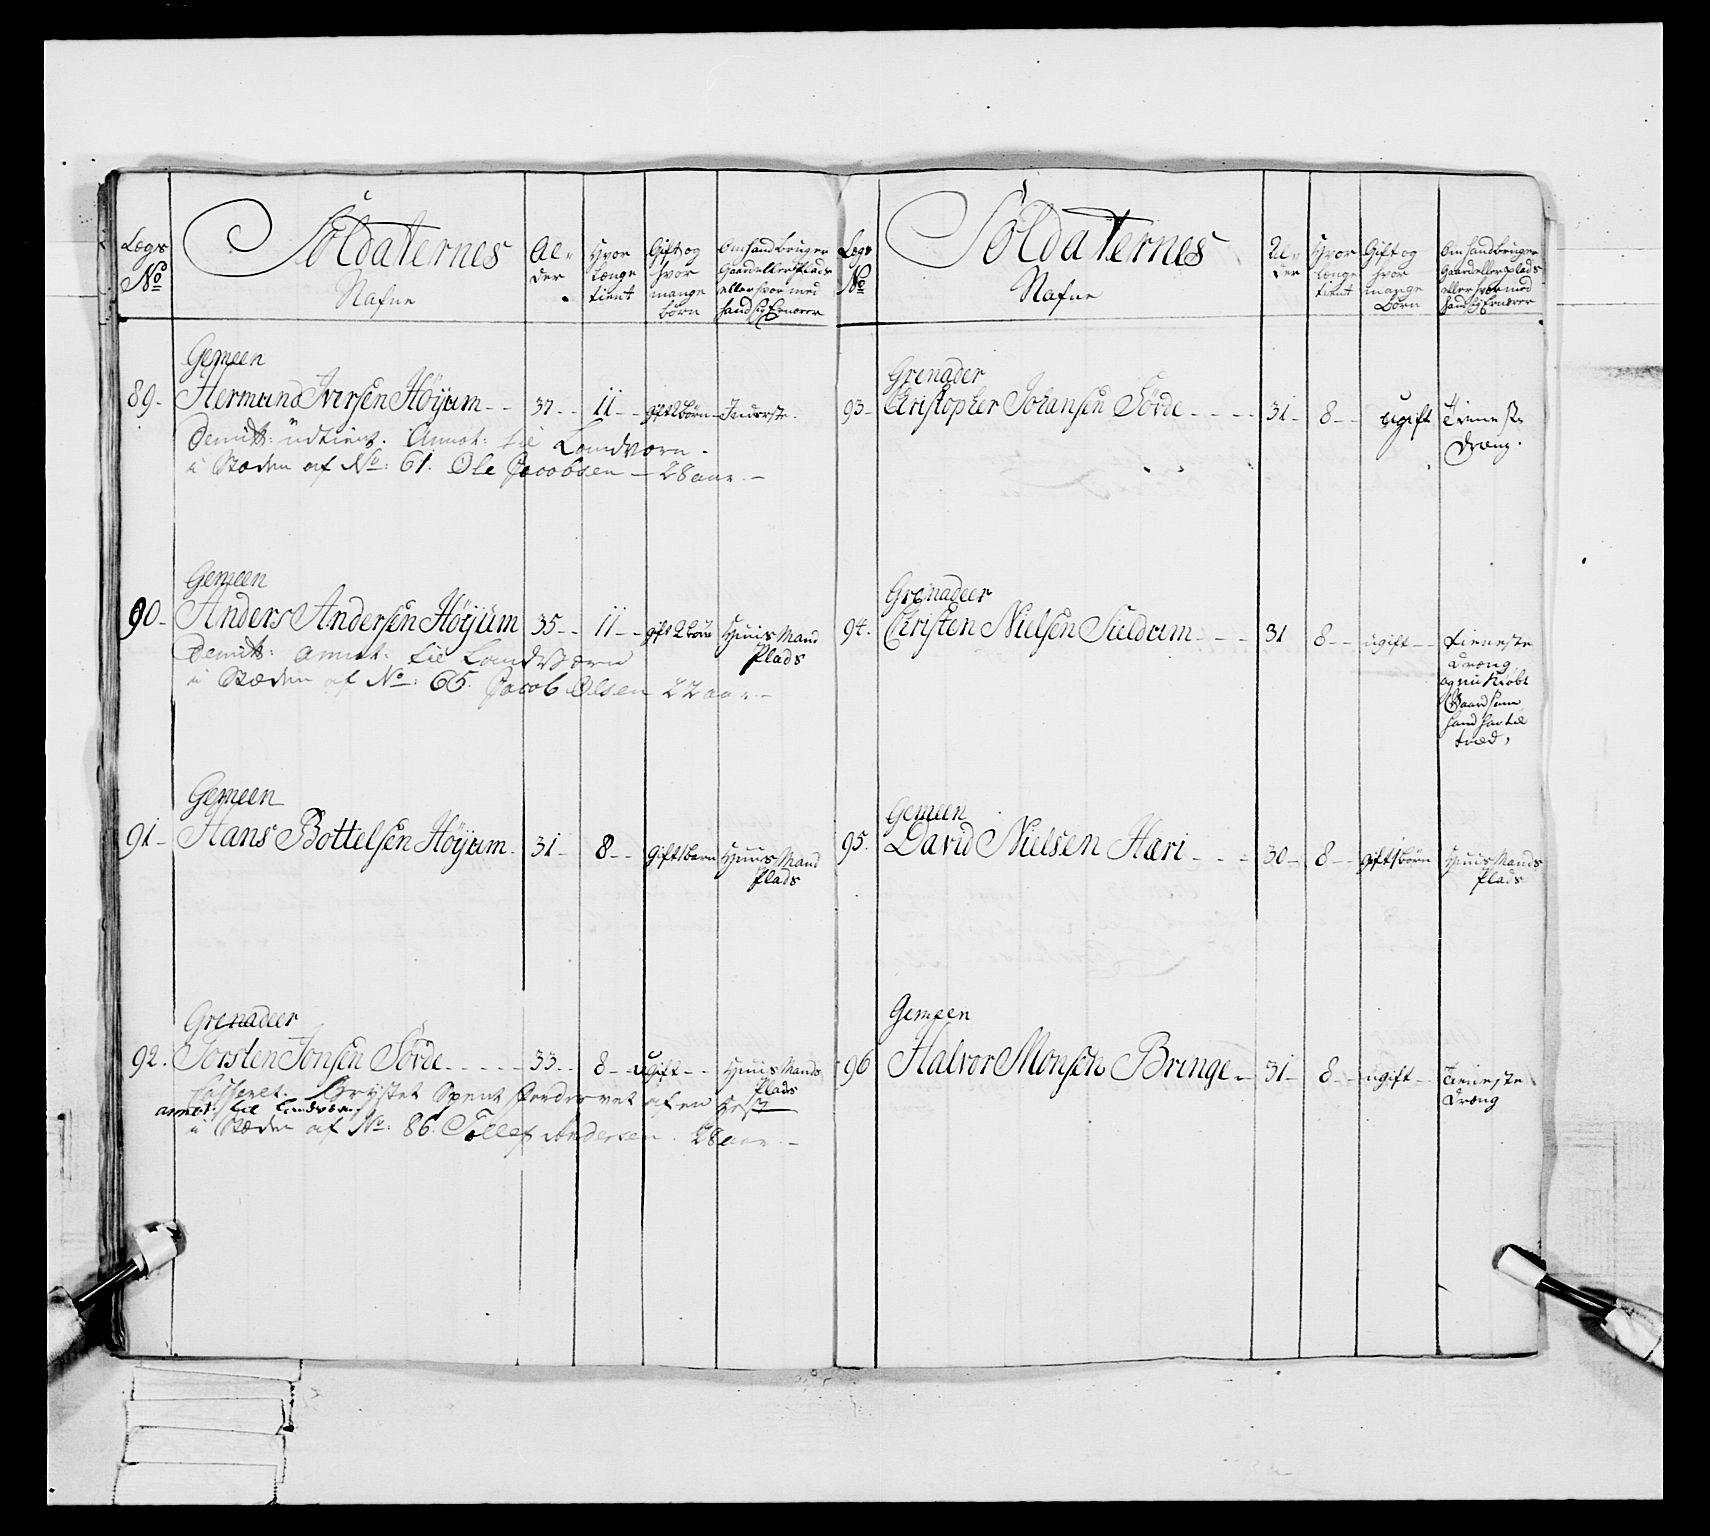 Legs No
Soldaternes Nafne
Al- der
Hvor længe tient
Gift og hvor mange børn
Om hand bruger Gaard eller Plads eller hvor med hand sig Ernærer
Gemeen
89 - Hermund Iversen Höyum - - 37 - - 11 - - gift 2 börn - Inderste.
Demitt: udtient. Annot: til Landværn.
i Stæden af No: 61. Ole Jacobsen - 28 aar. -
Gemeen
90 - Anders Andersen Höyum 35 - - 11 - - gift 2 börn Huus Mand Plads
Demitt: annot: til Landværn
i Stæden af No: 65. Jacob Olsen 22 aar. -
Gemeen
91 - Hans Bottelsen Höyum. 31 - 8 - - gift 1 barn Huus Mand Plads
Grenadeer
92. Torsten Jonsen Sörde - - - - - 33. - 8 - ugift - - Huus Mands Plads
Casseret. Brystet Spent fordervet af en Hest
annot: til Landværn
i Stæden af No: 86. Tollef Andersen. 28 aar. -
Legs No
Soldaternes Nafne
Al- der
Hvor længe tient
Gift og hvor mange Børn
Om hand bruger Gaard eller Plads eller hvor med hand sig Ernærer
Grenader
93 - Christopher Johansen Sörde - - - - 31 - 8 - - ugift Tieneste Dræng.
Grenadeer
94. Christen Nielsen Sieldrum - - - 31 8 - - ugift - - tieneste Dræng og nu Kiöbt Gaard som hand har til træd,
Gemeen
95. David Nielsen Hæri - - - 30 - 8 - - gift 1 börn Huus Mands Plads
Gemeen
96 Halvor Monsen Bringe - 31 - 8 - - ugift - - Tieneste Dræng